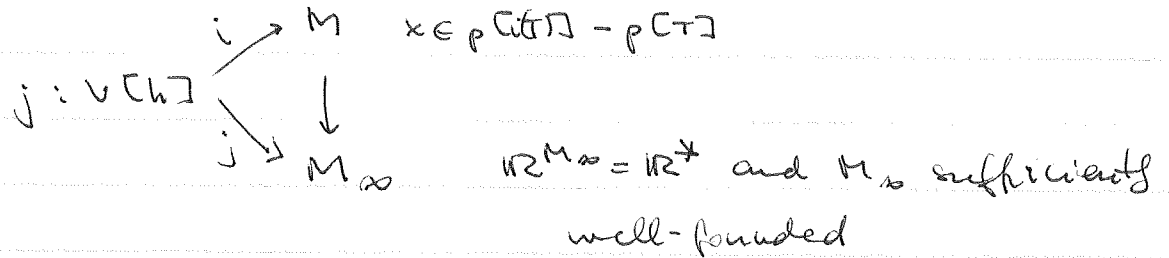 i M x ∈ p[i(T)] - p[T]
j : V[h]
j M∞ ℝ^{M∞} = ℝ* and M∞ sufficiently
well-founded